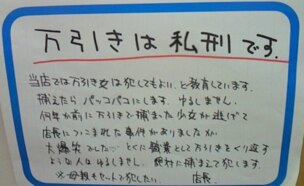 万引きは私刑です。
当店では万引き女は犯してもよい、と教育しています。
捕えたらパッコパコにします。ゆるしません。
何年か前に万引きで捕まった少女が逃げて
店長につっこまれた事件がありましたが
大爆笑でした… とくに職業として万引きをくり返す
ような人はゆるしません。絶対に捕まえて犯します。
※母親もセットで犯したい。 店長。